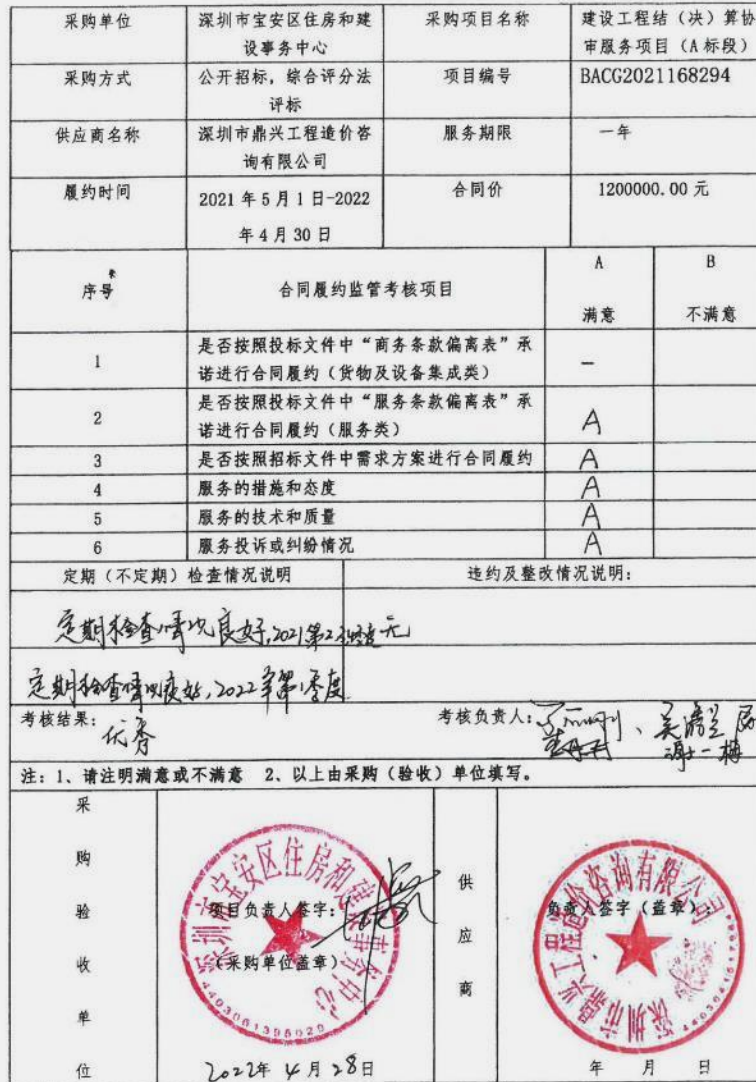 采购单位 深圳市宝安区住房和建 采购项目名称 建设工程结（决）算协
设事务中心 审服务项目（A标段）
采购方式 公开招标，综合评分法 项目编号 BACG2021168294
评标
供应商名称 深圳市鼎兴工程造价咨 服务期限 一年
询有限公司
履约时间 2021年5月1日-2022 合同价 1200000.00元
年4月30日
序号 合同履约监管考核项目 A B
满意 不满意
1 是否按照投标文件中“商务条款偏离表”承 —
诺进行合同履约（货物及设备集成类）
2 是否按照投标文件中“服务条款偏离表”承 A
诺进行合同履约（服务类）
3 是否按照招标文件中需求方案进行合同履约 A
4 服务的措施和态度 A
5 服务的技术和质量 A
6 服务投诉或纠纷情况 A
定期（不定期）检查情况说明 违约及整改情况说明：
定期检查情况良好，2021第2 无
定期检查情况良好，2022年第1季度
考核结果：优秀 考核负责人：
注：1、请注明满意或不满意 2、以上由采购（验收）单位填写。
采购验收单位
项目负责人签字：
（采购单位盖章）
深圳市宝安区住房和建设事务中心
4403061395020
2022年4月28日
供应商
负责人签字（盖章）：
深圳市鼎兴工程造价咨询有限公司
年 月 日